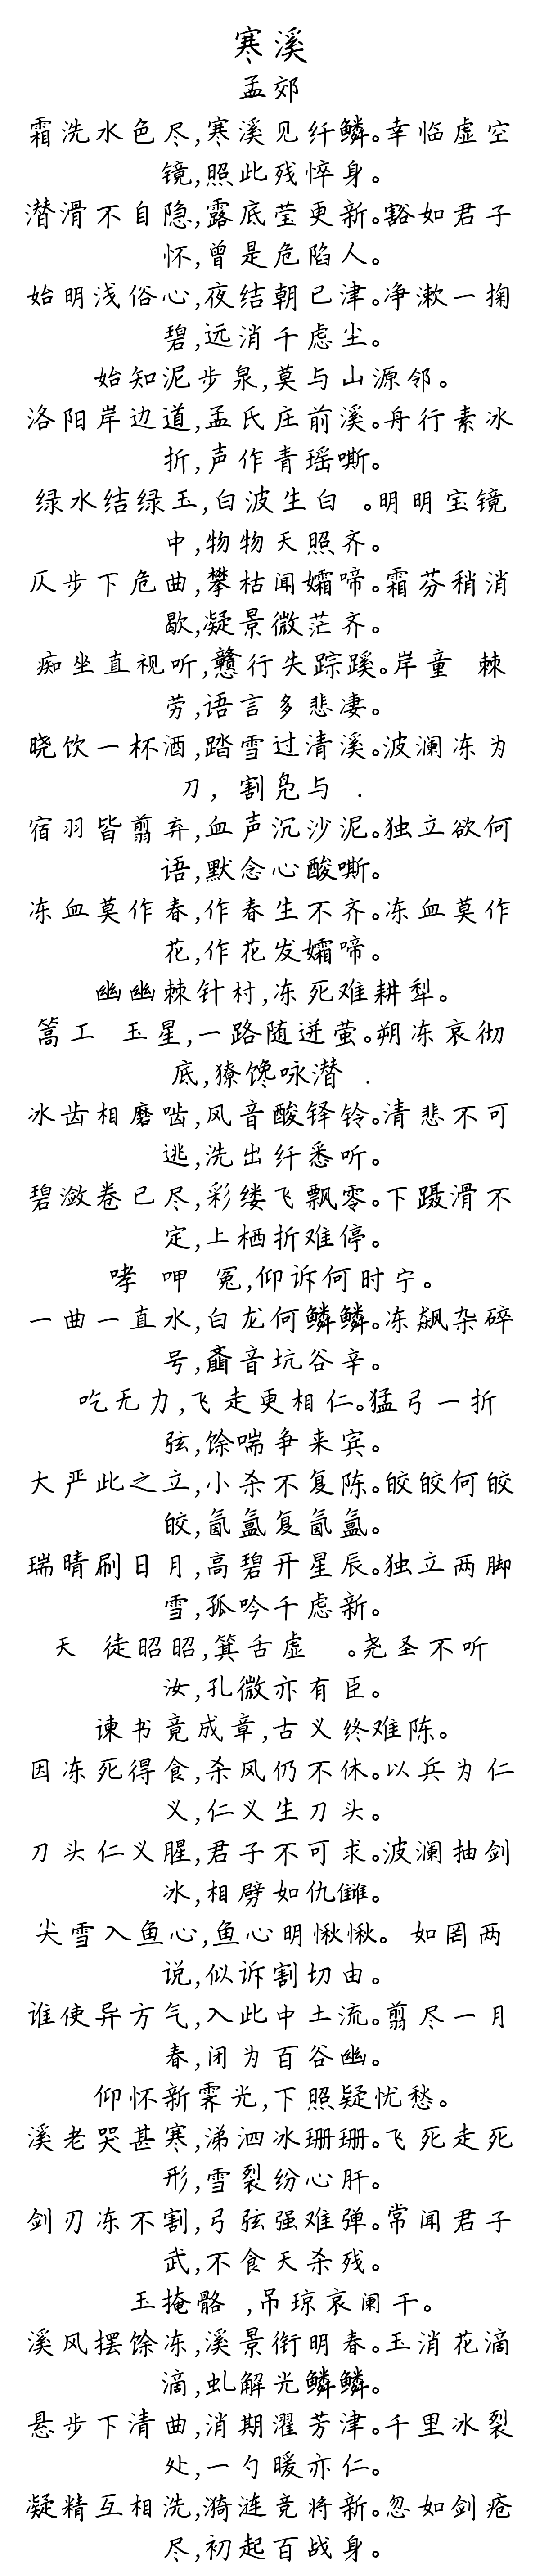 寒溪
孟郊
霜洗水色尽,寒溪见纤鳞。幸临虚空
镜,照此残悴身。
潜滑不自隐,露底莹更新。豁如君子
怀,曾是危陷人。
始明浅俗心,夜结朝已津。净漱一掬
碧,远消千虑尘。
始知泥步泉,莫与山源邻。
洛阳岸边道,孟氏庄前溪。舟行素冰
折,声作青瑶嘶。
绿水结绿玉,白波生白 。明明宝镜
中,物物天照齐。
仄步下危曲,攀枯闻孀啼。霜芬稍消
歇,凝景微茫齐。
痴坐直视听,戆行失踪蹊。岸童 棘
劳,语言多悲凄。
晓饮一杯酒,踏雪过清溪。波澜冻为
刀, 割凫与 .
宿羽皆翦弃,血声沉沙泥。独立欲何
语,默念心酸嘶。
冻血莫作春,作春生不齐。冻血莫作
花,作花发孀啼。
幽幽棘针村,冻死难耕犁。
篙工 玉星,一路随迸萤。朔冻哀彻
底,獠馋咏潜 .
冰齿相磨啮,风音酸铎铃。清悲不可
逃,洗出纤悉听。
碧潋卷已尽,彩缕飞飘零。下蹑滑不
定,上栖折难停。
哮 呷 冤,仰诉何时宁。
一曲一直水,白龙何鳞鳞。冻飙杂碎
号,齑音坑谷辛。
吃无力,飞走更相仁。猛弓一折
弦,馀喘争来宾。
大严此之立,小杀不复陈。皎皎何皎
皎,氤氲复氤氲。
瑞晴刷日月,高碧开星辰。独立两脚
雪,孤吟千虑新。
天 徒昭昭,箕舌虚 。尧圣不听
汝,孔微亦有臣。
谏书竟成章,古义终难陈。
因冻死得食,杀风仍不休。以兵为仁
义,仁义生刀头。
刀头仁义腥,君子不可求。波澜抽剑
冰,相劈如仇雠。
尖雪入鱼心,鱼心明愀愀。 如罔两
说,似诉割切由。
谁使异方气,入此中土流。翦尽一月
春,闭为百谷幽。
仰怀新霁光,下照疑忧愁。
溪老哭甚寒,涕泗冰珊珊。飞死走死
形,雪裂纷心肝。
剑刃冻不割,弓弦强难弹。常闻君子
武,不食天杀残。
玉掩骼 ,吊琼哀阑干。
溪风摆馀冻,溪景衔明春。玉消花滴
滴,虬解光鳞鳞。
悬步下清曲,消期濯芳津。千里冰裂
处,一勺暖亦仁。
凝精互相洗,漪涟竞将新。忽如剑疮
尽,初起百战身。